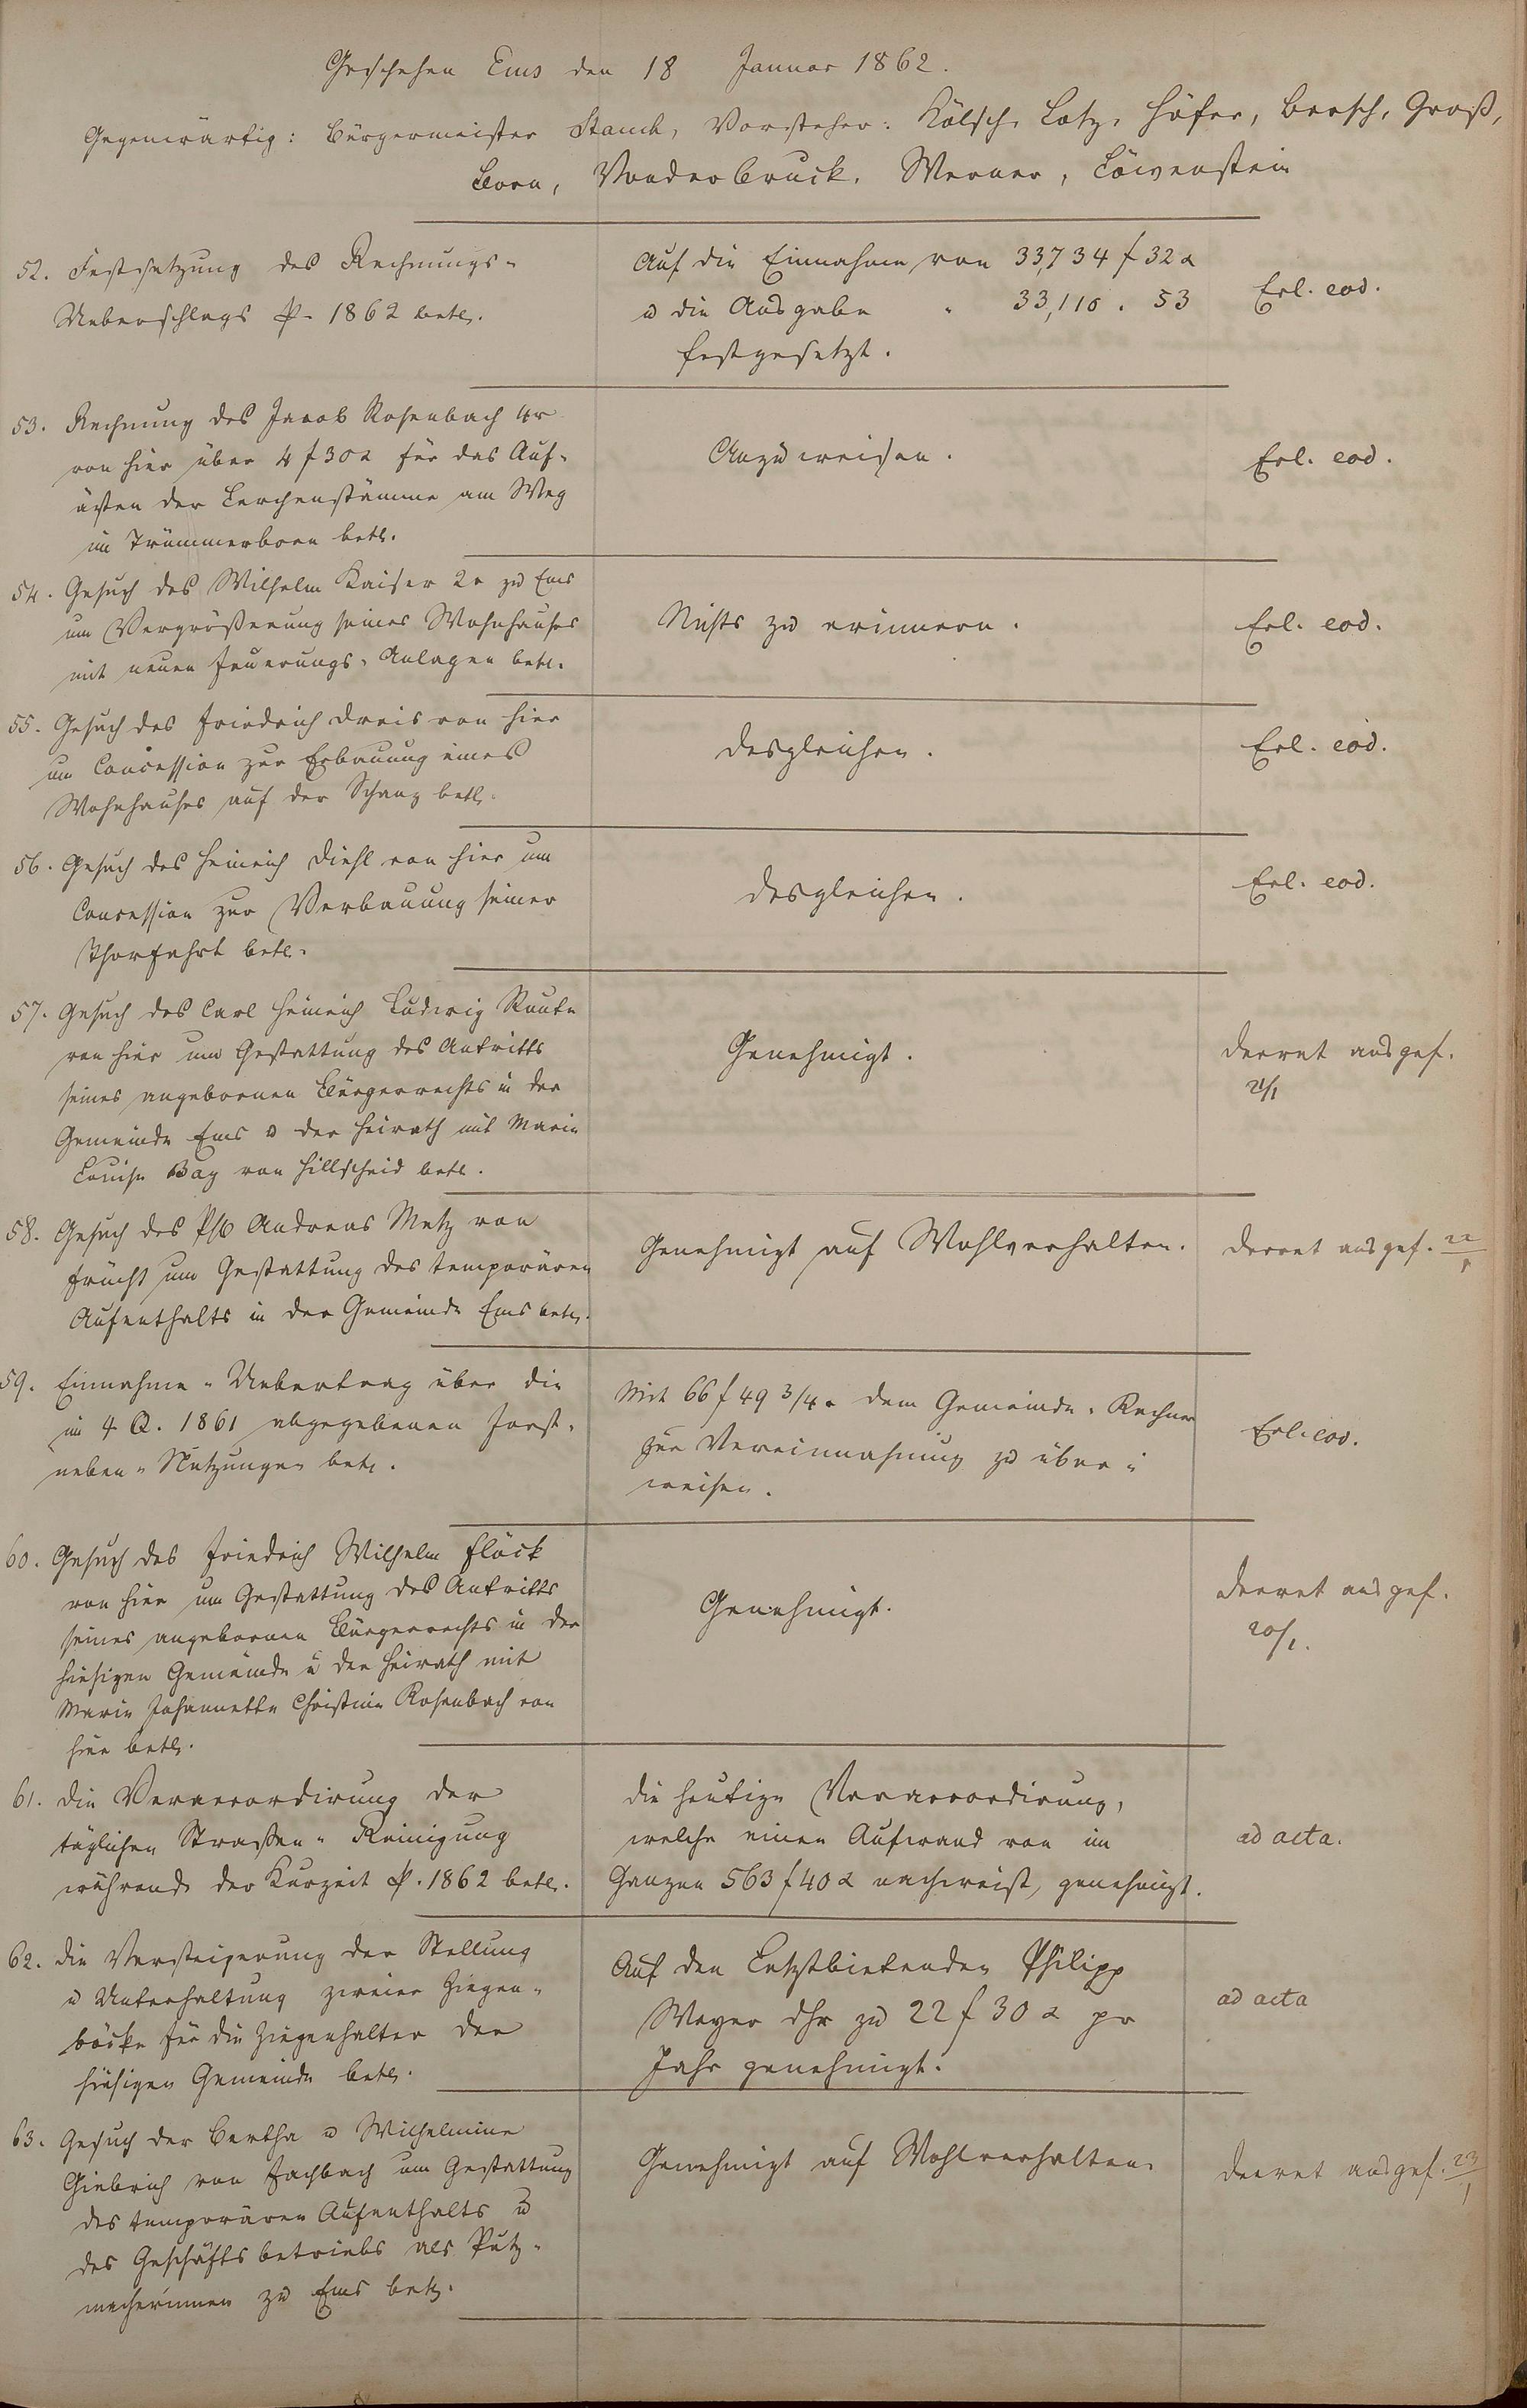 Geschehen Ems den 18 Januar 1862.
Gegenwärtig: Bürgermeister Stauch, Vorsteher: Kölsch, Lotz, Höfer, Bersch, Groß,
Born, Vonderbruck, Werner, Löwenstein
52. Festsetzung des Rechnungs-
Ueberschlags p. 1862 betr.
Auf die Einnahme von 33,734 f 32 x
u die Ausgabe " 33,110 . 53
festgesetzt.
Erl. eod.
53. Rechnung des Jacob Rosenbach 4r
von hier über 4 f 30 x für das Auf-
ästen der Lerchenstämme am Weg
im Trümmerborn betr.
Anzuweisen.
Erl. eod.
54. Gesuch des Wilhelm Kaiser 2r zu Ems
um Vergrößerung seines Wohnhauses
mit neuen Feuerungs-Anlagen betr.
Nichts zu erinnern.
Erl. eod.
55. Gesuch des Friedrich Dreis von hier
um Concession zur Erbauung eines
Wohnhauses auf der Schanz betr.
desgleichen.
Erl. eod.
56. Gesuch des Heinrich Diehl von hier um
Concession zur Verbauung seiner
Thorfahrt betr.
desgleichen.
Erl. eod.
57. Gesuch des Carl Heinrich Ludwig Raute
von hier um Gestattung des Antritts
seines angebornen Bürgerrechts in der
Gemeinde Ems u der Heirath mit Marie
Louise Bay von Hillscheid betr.
Genehmigt.
Decret ausgef.
21/1
58. Gesuch des Andreas Metz von
Frücht um Gestattung des temporären
Aufenthalts in der Gemeinde Ems betr.
Genehmigt auf Wohlverhalten.
Decret ausgef. 22/1
59. Einnahme-Uebertrag über die
im 4 Q. 1861 abgegebenen Forst-
neben-Nutzungen betr.
Mit 66 f 49 3/4 x dem Gemeinde-Rechner
zur Vereinnahmung zu über-
weisen.
Erl. eod.
60. Gesuch des Friedrich Wilhelm Flöck
von hier um Gestattung des Antritts
seines angebornen Bürgerrechts in der
hiesigen Gemeinde u der Heirath mit
Marie Johannette Christine Rosenbach von
hier betr.
Genehmigt.
Decret ausgef.
20/1.
61. Die Veraccordirung der
täglichen Straßen-Reinigung
während der Kurzeit p. 1862 betr.
Die heutige Veraccordirung,
welche einen Aufwand von im
Ganzen 563 f 40 x nachweist, genehmigt.
ad acta.
62. Die Versteigerung der Stellung
u Unterhaltung zweier Ziegen-
böcke für die Ziegenhalter der
hiesigen Gemeinde betr.
Auf den Letztbietenden Philipp
Weyer zu 22 f 30 x pr
Jahr genehmigt.
ad acta
63. Gesuch der Bertha u Wilhelmine
Giebrich von Fachbach um Gestattung
des temporären Aufenthalts u
des Geschäftsbetriebs als Putz-
macherinnen zu Ems betr.
Genehmigt auf Wohlverhalten.
Decret ausgef. 23/1